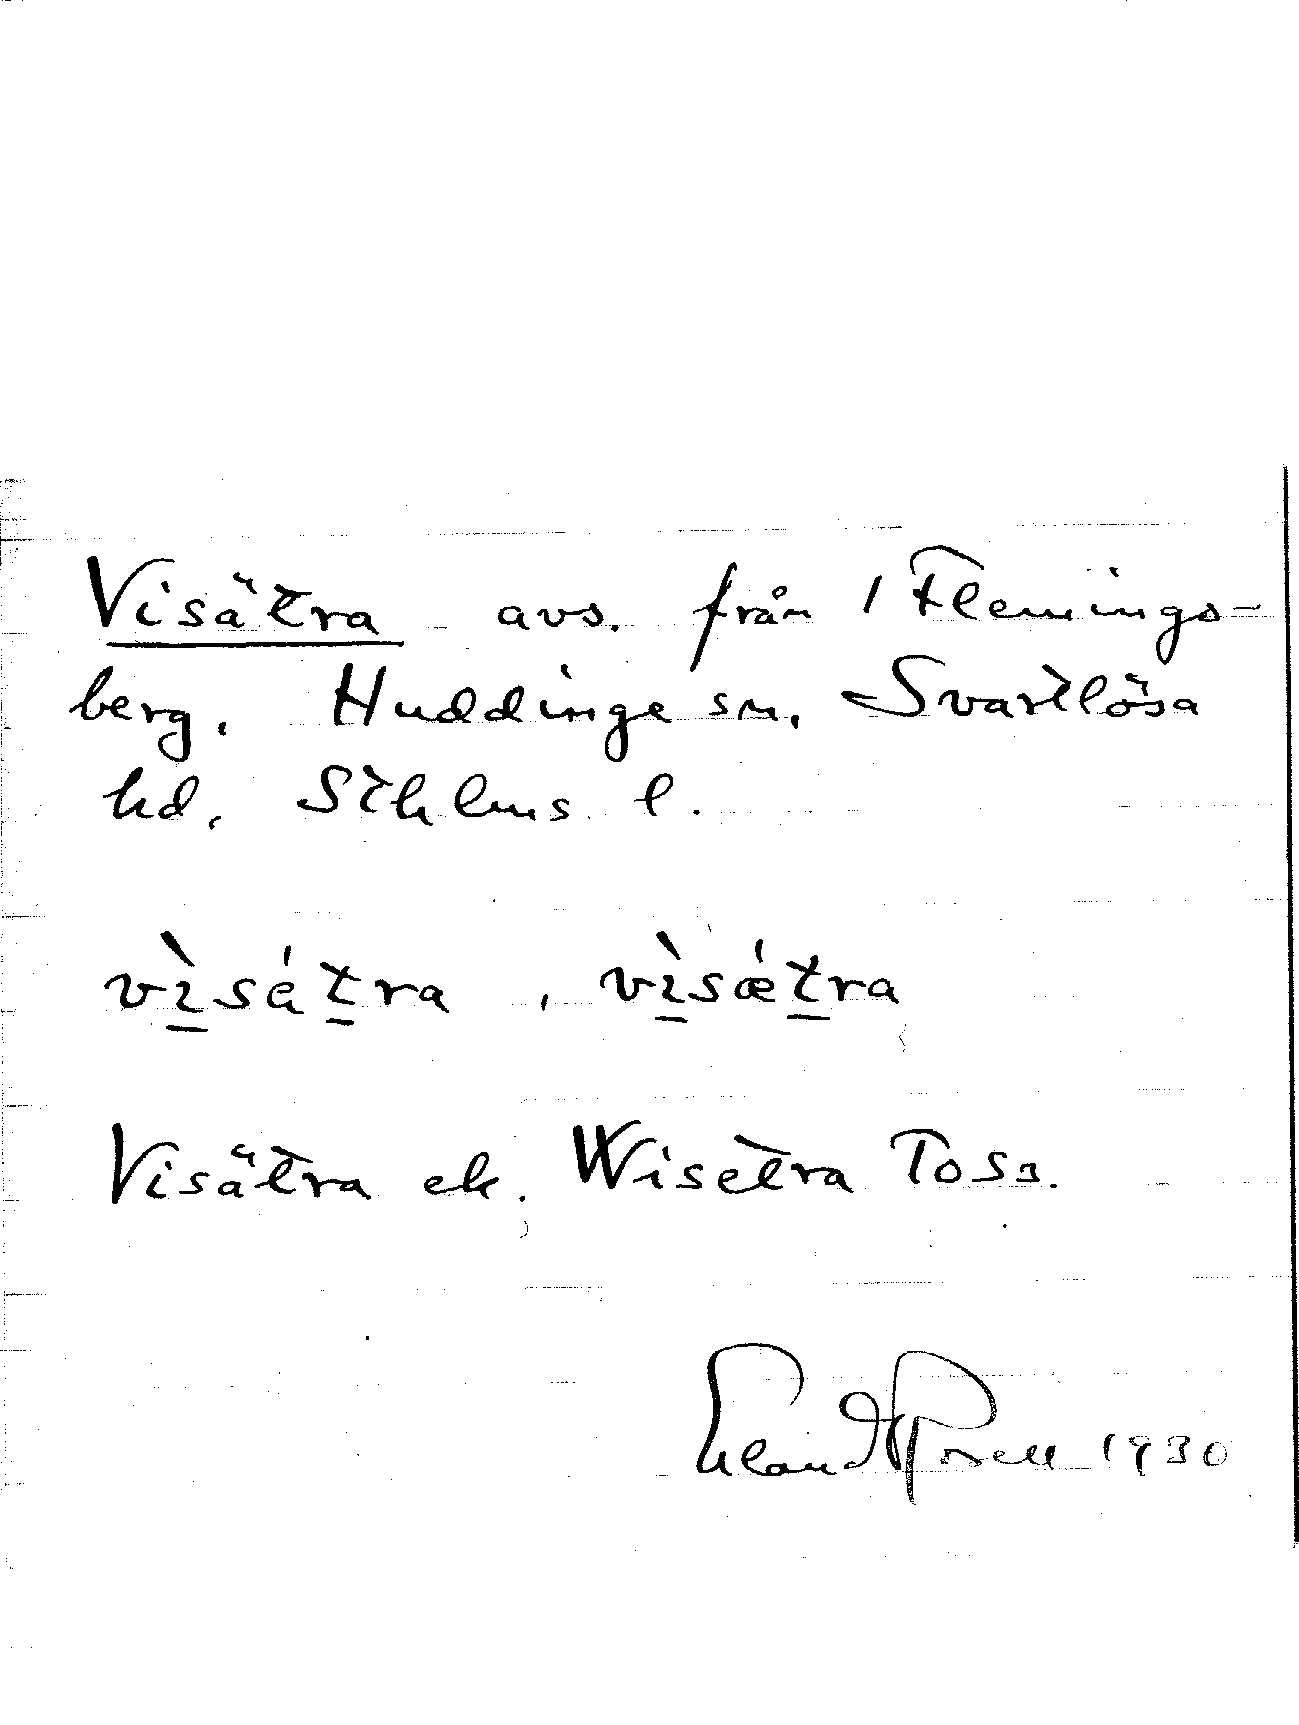 Visätra avs. från 1 Flemings-
berg, Huddinge sn, Svartlösa
hd, Sthlms l.
vì̠sá̈t̠ra, vì̠sǽt̠ra
Visätra ek. Wisetra Toss.
Erland Rosell 1930